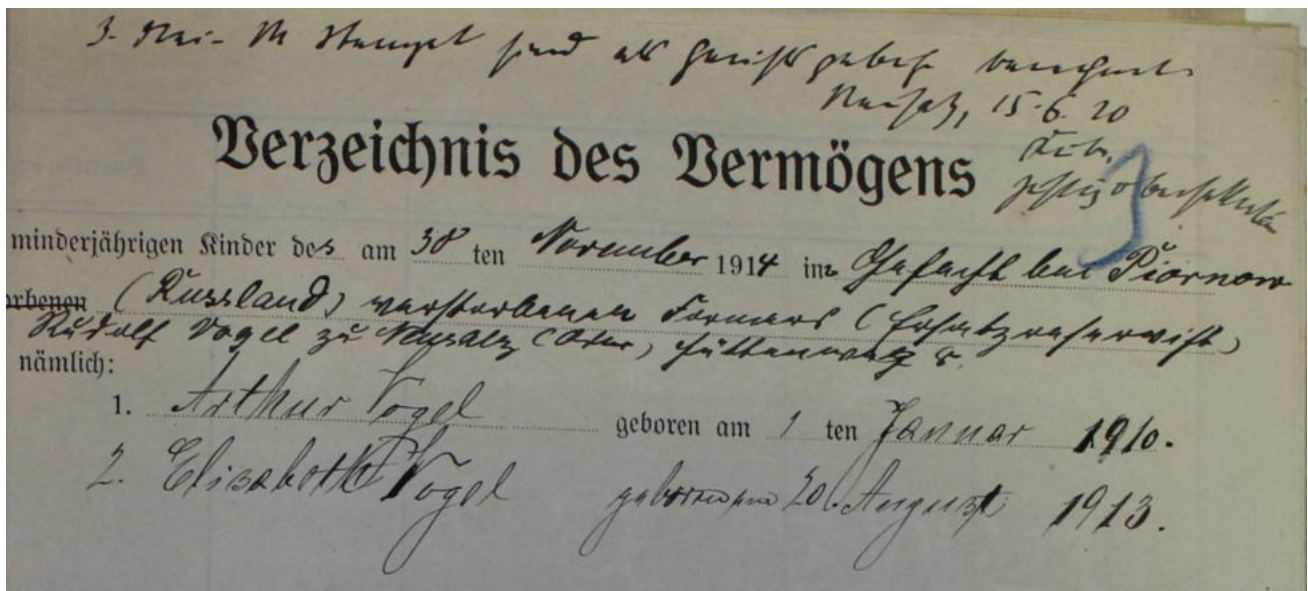 3. Mk Stempel sind als berechnet
15.6.20
Verzeichnis des Vermögens
minderjährigen Kinder des am 30 ten November 1914 im Gefecht bei Piornow
orbenen (Russland) verstorbenen Formers (Ersatzreservist)
Rudolf Vogel zu Neusalz (Oder) Hüttenweg
nämlich:
1. Arthur Vogel geboren am 1 ten Januar 1910.
2. Elisabeth Vogel geboren am 20. August 1913.